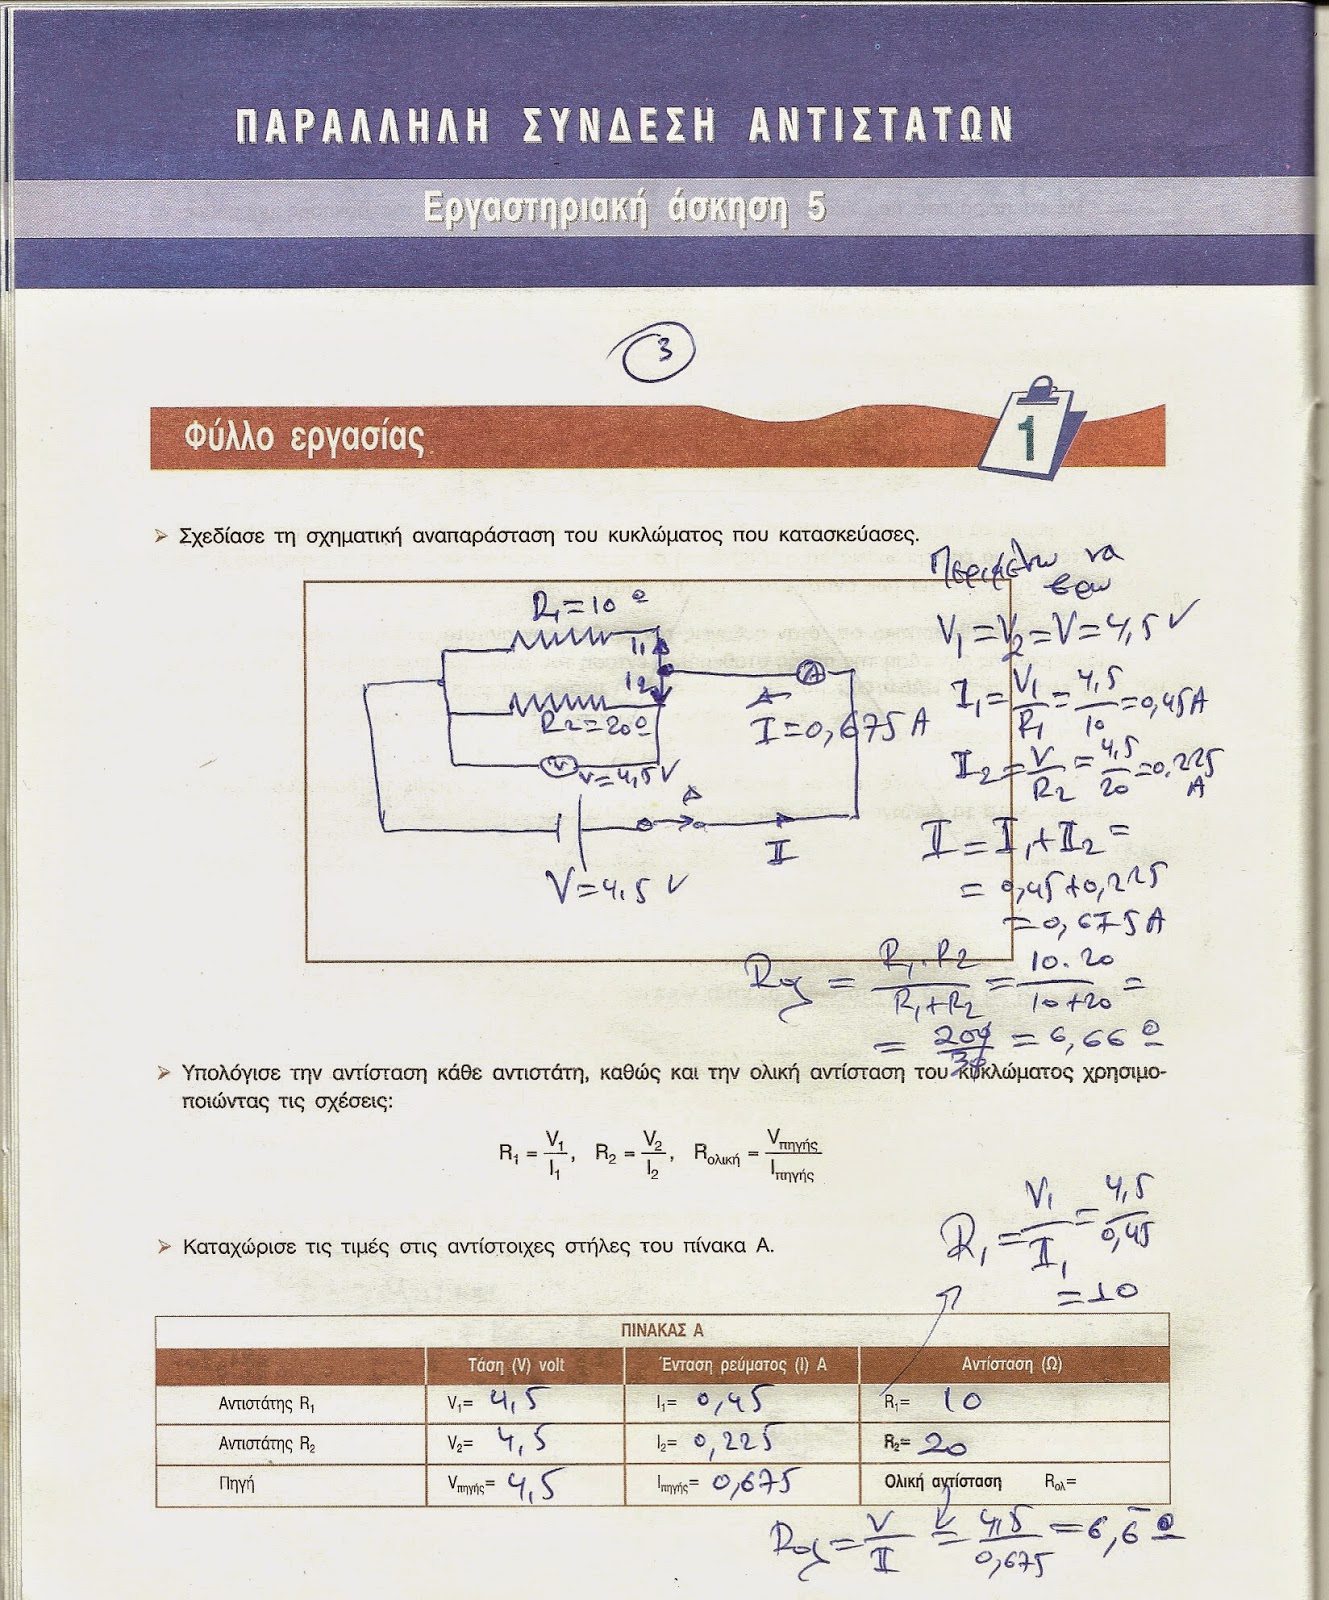 ΠΑΡΑΛΛΗΛΗ ΣΥΝΔΕΣΗ ΑΝΤΙΣΤΑΤΩΝ
Εργαστηριακή άσκηση 5
3
Φύλλο εργασίας
1
➢ Σχεδίασε τη σχηματική αναπαράσταση του κυκλώματος που κατασκεύασες.
Περιμένω να
βρω
R₁=10 Ω
I₁
I₂
R₂=20Ω
V
V=4,5 V
A
I=0,675 A
Δ
I
V=4,5 V
V₁=V₂=V=4,5 V
I₁=V₁/R₁=4,5/10=0,45A
I₂=V/R₂=4,5/20=0,225
A
I=I₁+I₂=
=0,45+0,225
=0,675A
Rολ = R₁·R₂/R₁+R₂ = 10·20/10+20 =
= 200/30 = 6,66 Ω
➢ Υπολόγισε την αντίσταση κάθε αντιστάτη, καθώς και την ολική αντίσταση του κυκλώματος χρησιμο-
ποιώντας τις σχέσεις:
R₁ = V₁/I₁, R₂ = V₂/I₂, Rολική = Vπηγής/Iπηγής
R₁=V₁/I₁=4,5/0,45
=10
➢ Καταχώρισε τις τιμές στις αντίστοιχες στήλες του πίνακα Α.
ΠΙΝΑΚΑΣ Α
Τάση (V) volt Ένταση ρεύματος (I) A Αντίσταση (Ω)
Αντιστάτης R₁ V₁= 4,5 I₁= 0,45 R₁= 10
Αντιστάτης R₂ V₂= 4,5 I₂= 0,225 R₂= 20
Πηγή Vπηγής= 4,5 Iπηγής= 0,675 Ολική αντίσταση Rολ=
Rολ=V/I = 4,5/0,675 =6,6̄ Ω